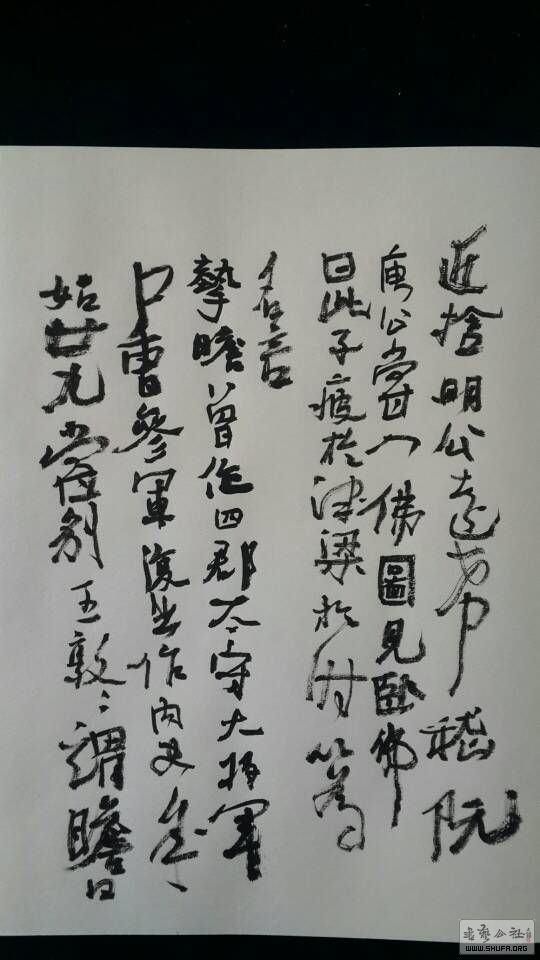 近捨明公遠希嵇阮
庾公嘗入佛圖見臥佛
曰此子疲於津梁於時以為
名言
摯瞻曾作四郡太守大將軍
戶曹參軍復出作內史年
始廿九嘗別王敦〻謂瞻曰
WWW.SHUFA.ORG